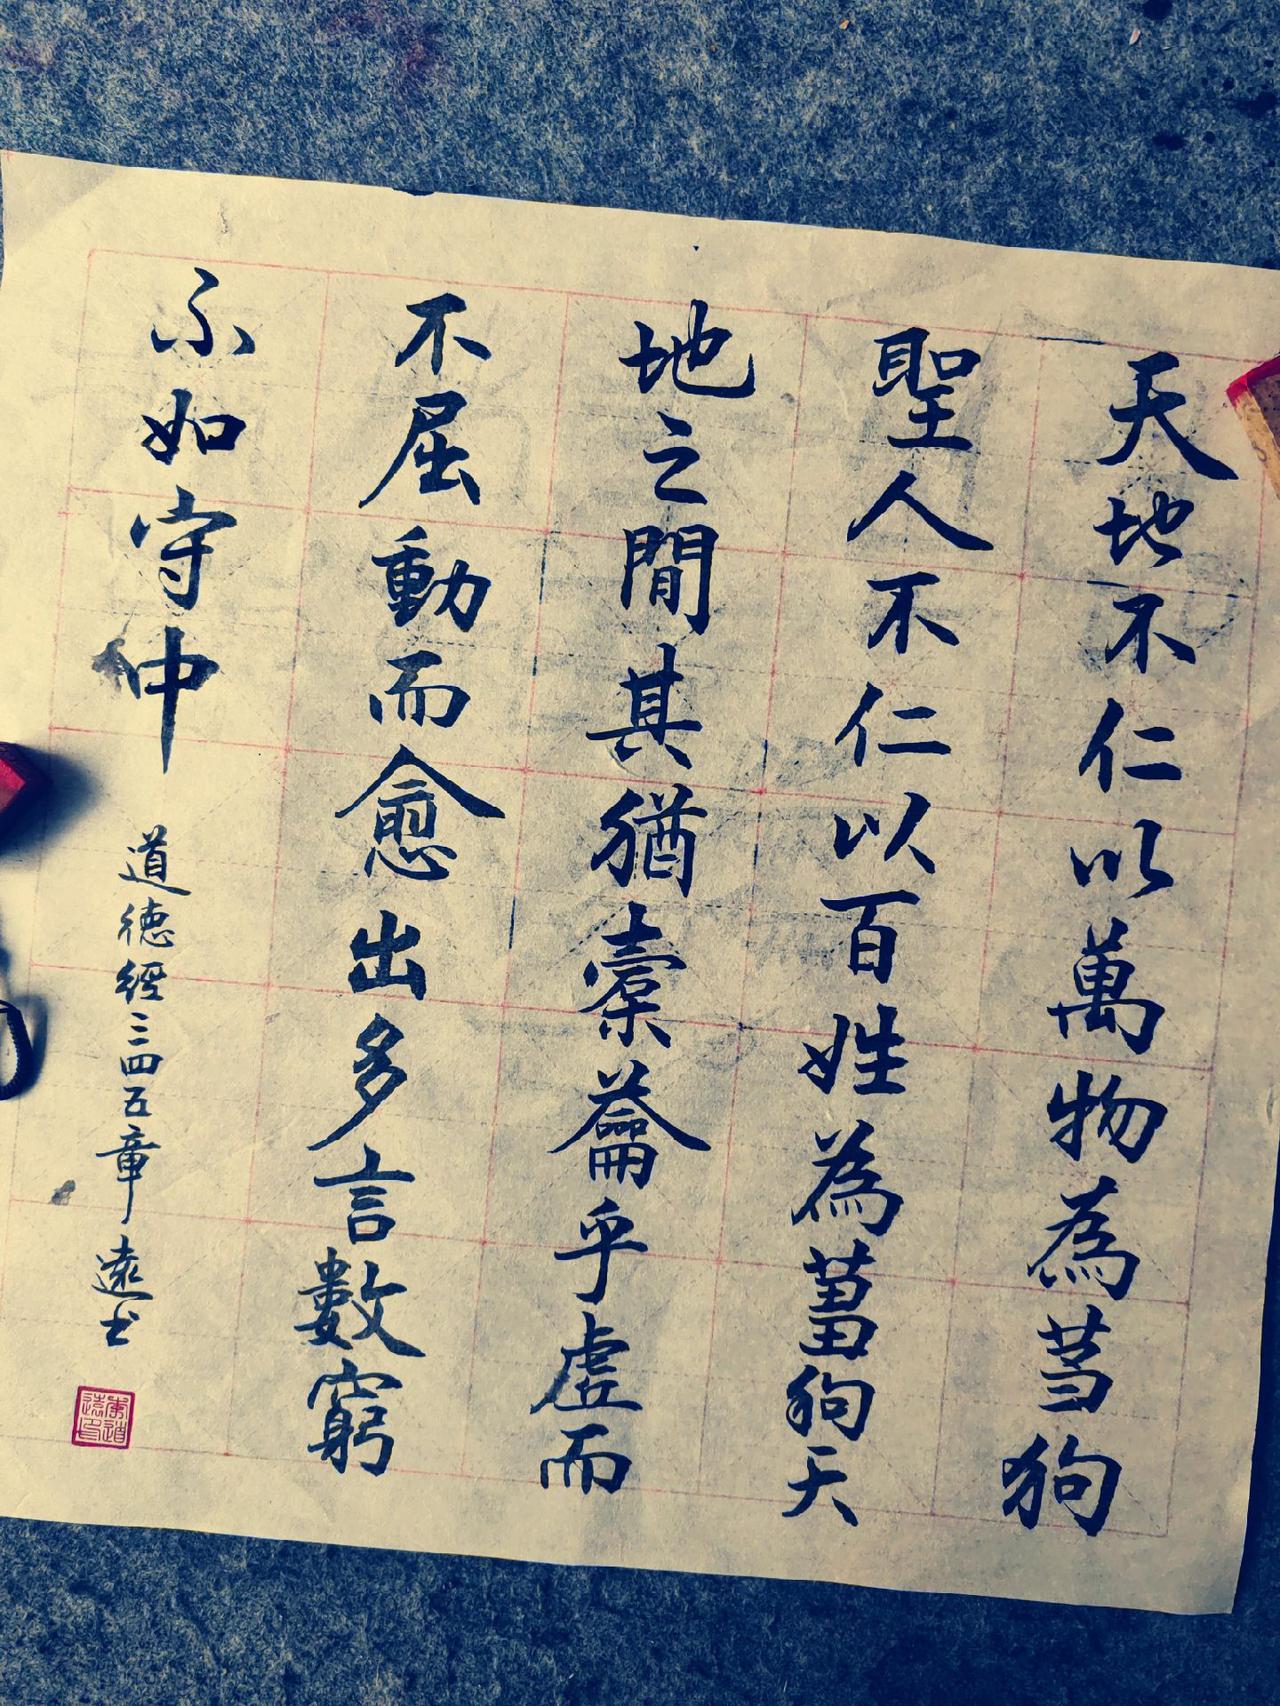 天地不仁以萬物為芻狗
聖人不仁以百姓為芻狗天
地之間其猶橐籥乎虛而
不屈動而愈出多言數窮
不如守中
道德經三四五章 遠书